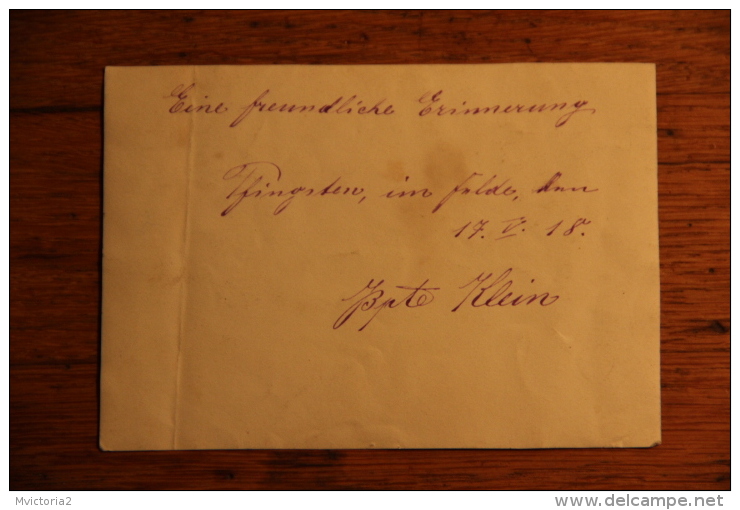 Eine freundliche Erinnerung
Pfingsten, im Felde, den
17. V. 18.
Klein
Mvictoria2
www.delcampe.net